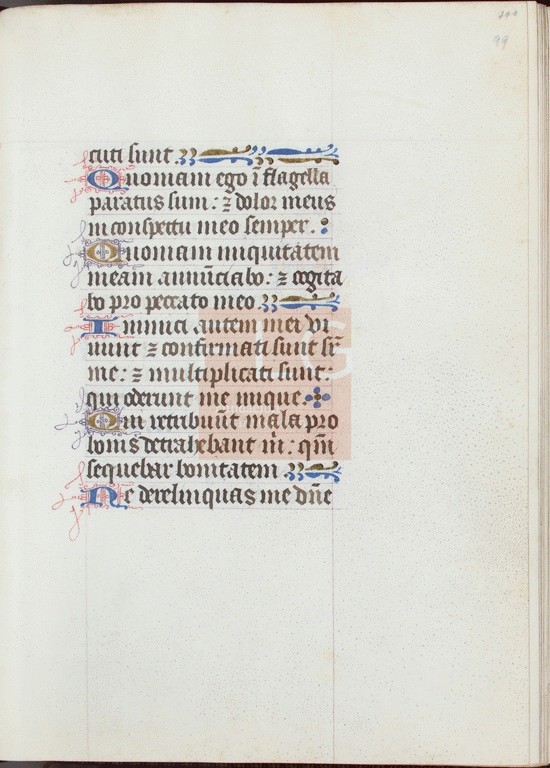 99
cuti sunt
Quoniam ego ī flagella
paratus sum: ⁊ dolor meus
in conspectu meo semper.
Quoniam iniquitatem
meam annūciabo: ⁊ cogita
bo pro peccato meo
Inimici autem mei vi
uunt ⁊ confirmati sunt sr̄
me: ⁊ multiplicati sunt:
qui oderunt me inique.
Qui retribuūt mala pro
bonis detrahebant m̄: qm̄
sequebar bonitatem
Ne derelinquas me dn̄e